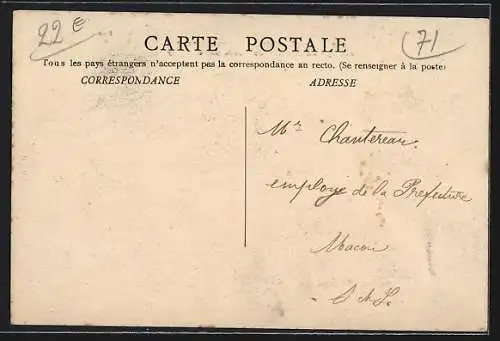 22 €
71
CARTE POSTALE
Tous les pays étrangers n'acceptent pas la correspondance au recto. (Se renseigner à la poste)
CORRESPONDANCE
ADRESSE
Mr Chantereau.
employe de la Prefecture
Macon
S & L.